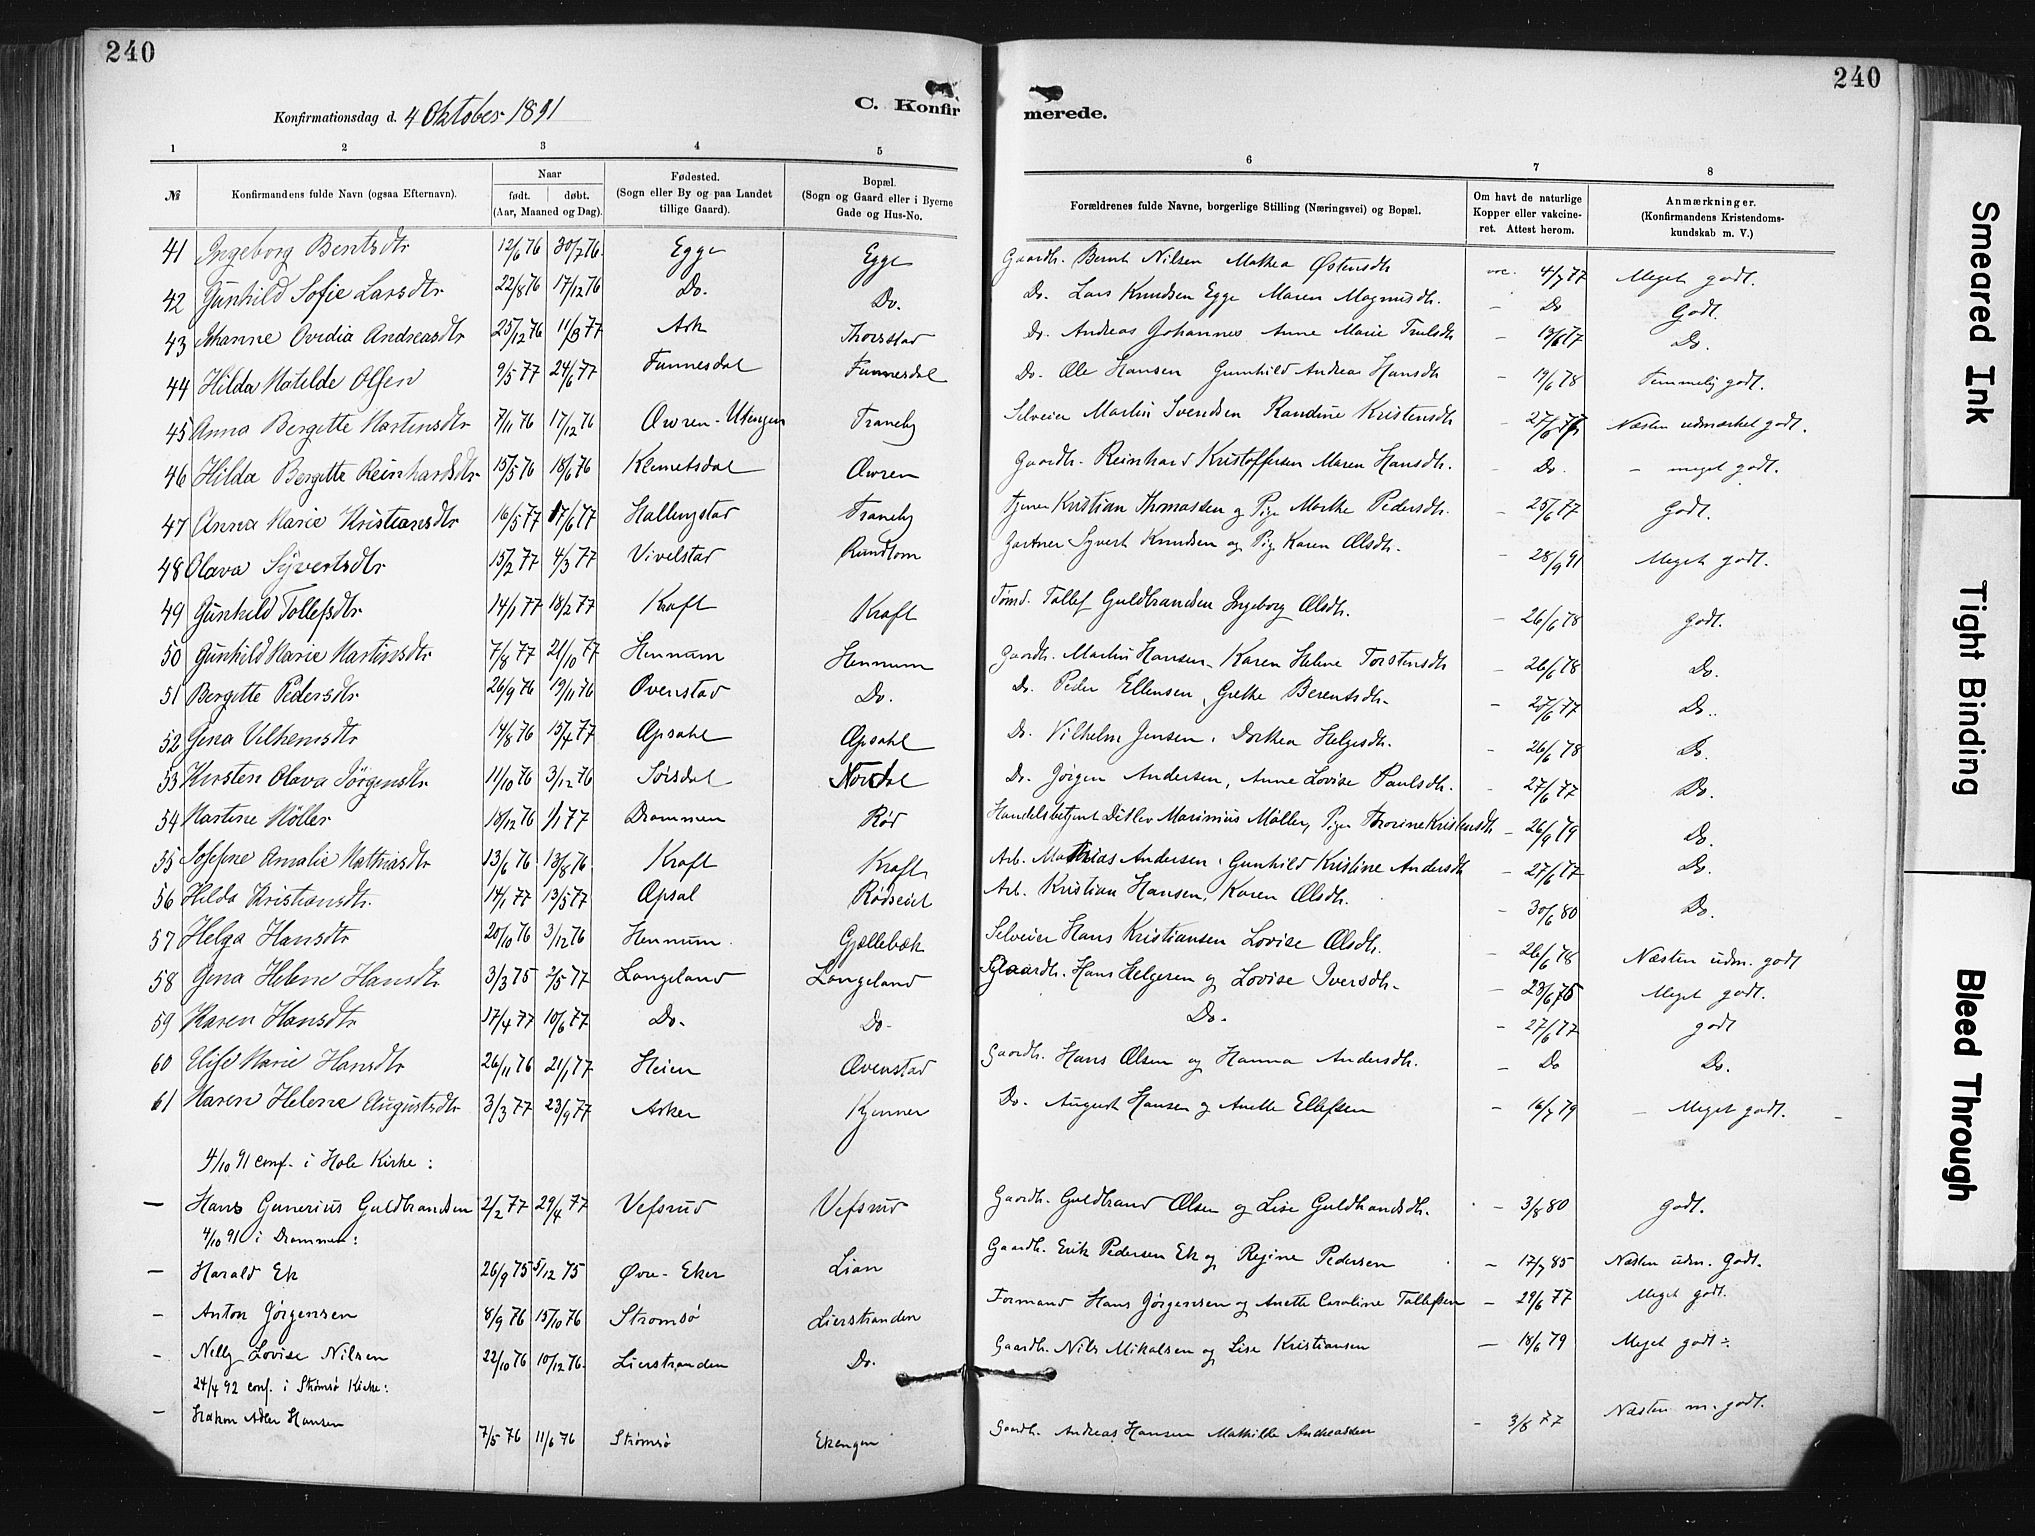 240
240
Konfirmationsdag d. 4 Oktober 1891
C. Konfir merede.
1 2 3 4 5 6 7 8
№ Konfirmandens fulde Navn (ogsaa Efternavn). Naar født. døbt. (Aar, Maaned og Dag). Fødested. (Sogn eller By og paa Landet tillige Gaard). Bopæl. (Sogn og Gaard eller i Byerne Gade og Hus-No. Forældrenes fulde Navne, borgerlige Stilling (Næringsvei) og Bopæl. Om havt de naturlige Kopper eller vakcineret. Attest herom. Anmærkninger. (Konfirmandens Kristendomskundskab m. V.)
41 Ingeborg Berntsdtr 12/6 76 30/7 76. Egge Egge Gaardb. Bernt Nilsen Mathea Østensdtr vac. 4/7 77 Meget godt.
42 Gunhild Sofie Larsdtr 22/8 76 17/12 76 Do. Do. Do. Lars Knudsen Egge Maren Magnusdtr. - Do Godt.
43 Johanne Ovidia Andreasdtr 25/12 76 11/3 77 Ask Thorstad Do. Andreas Johannes Anne Marie Trulsdtr - 13/6 77 Do.
44 Hilda Matilde Olsen 9/5 77 24/6 77 Funnesdal Funnesdal Do. Ole Hansen Gunhild Andrea Hansdtr - 19/6 78 Temmelig godt.
45 Anna Bergitte Martinsdtr 7/11 76 17/12 76 Owren-Utengen Traneby Selveier Martin Svendsen Randine Kristensdtr - 27/6 77 Næsten udmærket godt.
46 Hilda Bergitte Reinhardsdtr 15/5 76 18/6 76 Klemetsdal Owren Gaardb. Reinhard Kristoffersen Maren Hansdtr. - Do. - meget godt.
47 Anna Marie Kristiansdtr 16/5 77 17/6 77 Hallingstad Traneby Tjener Kristian Thomassen og Pige Marthe Pedersdtr. - 25/6 77 Godt.
48 Olava Syvertsdtr 15/2 77 4/3 77 Vivelstad Rundtom Gartner Syvert Knudsen og Pig. Karen Olsdtr. - 28/9 91 Meget godt.
49 Gunhild Tollefsdtr 14/1 77 18/2 77 Kraft Kraft Tømd. Tollef Guldbrandsen Ingeborg Olsdtr. - 26/6 78 godt.
50 Gunhild Marie Martinsdtr 7/8 77 21/10 77 Hennum Hennum Gaardb. Martin Hansen. Karen Helene Torstensdtr - 26/6 78 Do.
51 Bergitte Pedersdtr 26/9 76 19/11 76 Ovenstad Do. Do. Peder Ellensen, Grethe Berentsdtr. - 20/6 77 Do.
52 Gina Vilhemsdtr 14/8 76 15/4 77 Opsahl Opsahl Do. Vilhelm Jensen, Dorthea Helgesdtr. - 26/6 78 Do.
53 Kirsten Olava Jørgensdtr 11/10 76 3/12 76 Sørsdal Nordal Do. Jørgen Andersen, Anne Lovise Paulsdtr. - 27/6 77 Do.
54 Martine Møller 18/12 76 1/1 77 Drammen Rød Handelsbetjent Ditlev Marinius Møller, Pige Thorine Kristensdtr - 26/9 79 Do.
55 Josefine Amalie Mathiasdtr 13/6 76 13/8 76 Kraft Kraft Arb. Mathias Andersen, Gunhild Kristine Andersdtr - 27/6 77 Do.
56 Hilda Kristiansdtr. 14/1 77 13/5 77 Opsal Rødseiet Arb. Kristian Hansen, Karen Olsdtr. - 30/6 80 Do.
57 Helga Hansdtr 20/10 76 3/12 76 Hennum. Gjellebæk Selveier Hans Kristiansen Lovise Olsdtr. - 26/6 78 Næsten udm. godt
58 Gina Helene Hansdtr. 3/3 75 2/5 77 Langeland Langeland Gaardb. Hans Helgesen og Lovise Iversdtr. - 23/6 75 Meget godt.
59 Karen Hansdtr 17/4 77 10/6 77 Do. Do. Do. - 27/6 77 godt
60 Elise Marie Hansdtr 26/11 76 21/1 77 Heien Ovenstad Gaardb. Hans Olsen og Hanna Andersdtr. - Do Do.
61 Maren Helene Augustsdtr 3/3 77 23/9 77 Asker Kjenner Do. August Hansen og Anette Ellefsen - 16/7 79 - Meget godt. -
4/10 91 conf. i Hole Kirke:
- Hans Gunerius Guldbrandsen 2/2 77 29/4 77 Vefsrud Vefsrud Gaardb. Guldbrand Olsen og Lise Guldbrandsdtr. - 3/8 80 godt.
4/10 91 i Drammen:
- Harald Ek 26/9 75 5/12 75 Øvre-Eker Lian Gaardb. Erik Pedersen Ek og Regine Pedersen - 17/7 85 Næsten udm. Godt.
- Anton Jørgensen 8/9 76 15/10 76 Strømsø Lierstranden Formand Hans Jørgensen og Anette Caroline Tollefsen - 29/6 77 Meget godt.
- Nelly Lovise Nilsen 22/10 76 10/12 76. Lierstranden Do. Gaardb. Nils Mikalsen og Lise Kristiansen - 18/6 79 Meget godt.
24/4 92 conf. i Strømsø Kirke:
- Hakon Adler Hansen 7/5 76 11/6 76 Strømsø Ekengen Gaardb. Andreas Hansen Mathilde Andreassen - 3/8 77 Næsten m. godt.
Smeared Ink
Tight Binding
Bleed Through